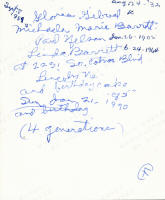 Sept 1989
Aug 24 - '32
Gloria
Michaela Marie Barrett
Nelson Jan 26-1905
Linda Barrett 6-24-1964
at 1231 So. Cotner Blvd
Lincoln Ne
and birthday cake
Sun Jan 21, 1990
and birthday
(4 generations)